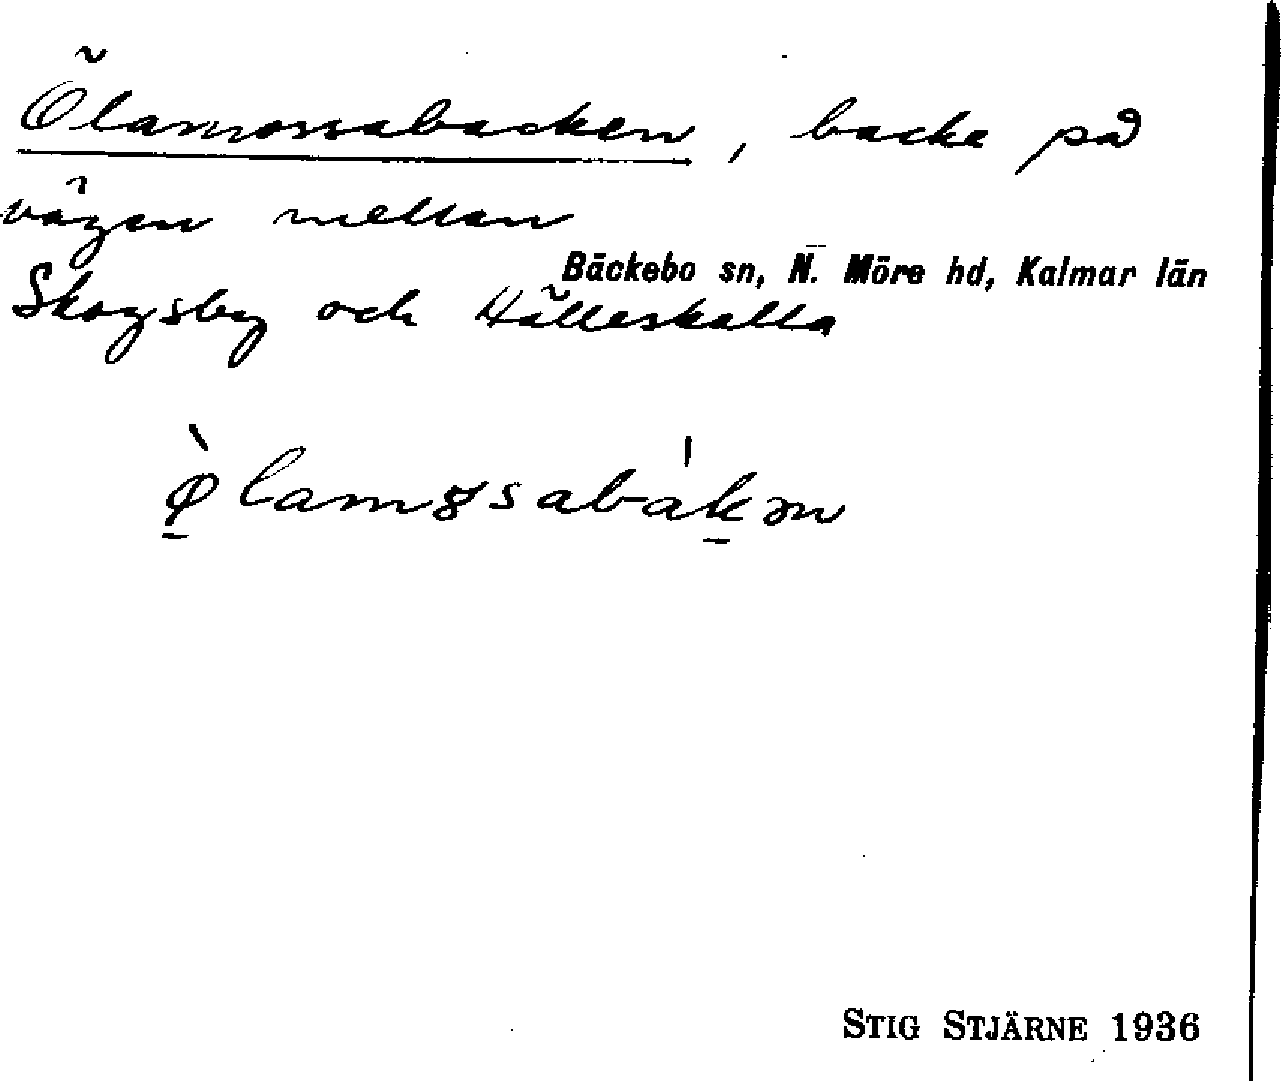 Ölamossabacken, backe på
vägen mellan
Bäckebo sn, N. Möre hd, Kalmar län
Skogsby och Hälleskalla
ø̀lamɞsabàkən
STIG STJÄRNE 1936